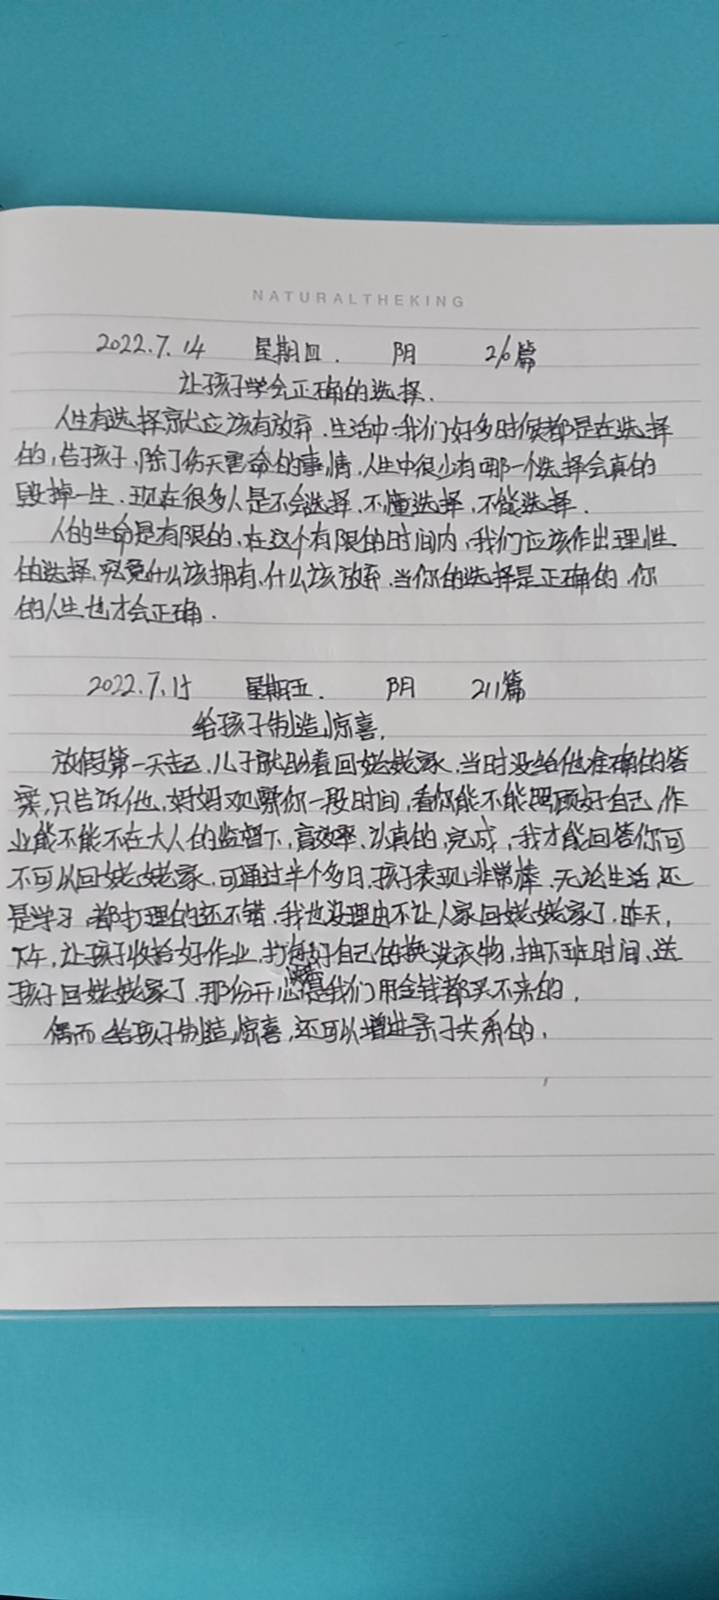 NATURALTHEKING
2022.7.14 星期四. 阴 210篇
让孩子学会正确的选择.
人生有选择就应该有放弃.生活中,我们好多时候都是在选择
的,告子孩子,除了伤天害命的事情,人生中很少有哪一个选择会真的
毁掉一生.现在很多人是不会选择,不懂选择,不能选择.
人的生命是有限的,在这个有限的时间内,我们应该作出理性
的选择,究竟什么该拥有,什么该放弃.当你的选择是正确的,你
的人生也才会正确.
2022.7.15 星期五. 阴 211篇
给孩子制造惊喜,
放假第一天起,儿子就盼着回姥姥家,当时没给他准确的答
案,只告诉他,妈妈观察你一段时间,看你能不能照顾好自己,作
业能不能不在大人的监督下,高效率、认真的,完成,我才能回答你可
不可以回姥姥家,可通过半个多月,孩子表现非常棒,无论生活,还
是学习,都打理的还不错,我也没理由不让人家回姥姥家了,昨天,
下午,让孩子收拾好作业,打包好自己的换洗衣物,抽下班时间、送
孩子回姥姥家了,那份开心是我们用金钱都买不来的,
偶而,给孩子制造惊喜,还可以增进亲子关系的,